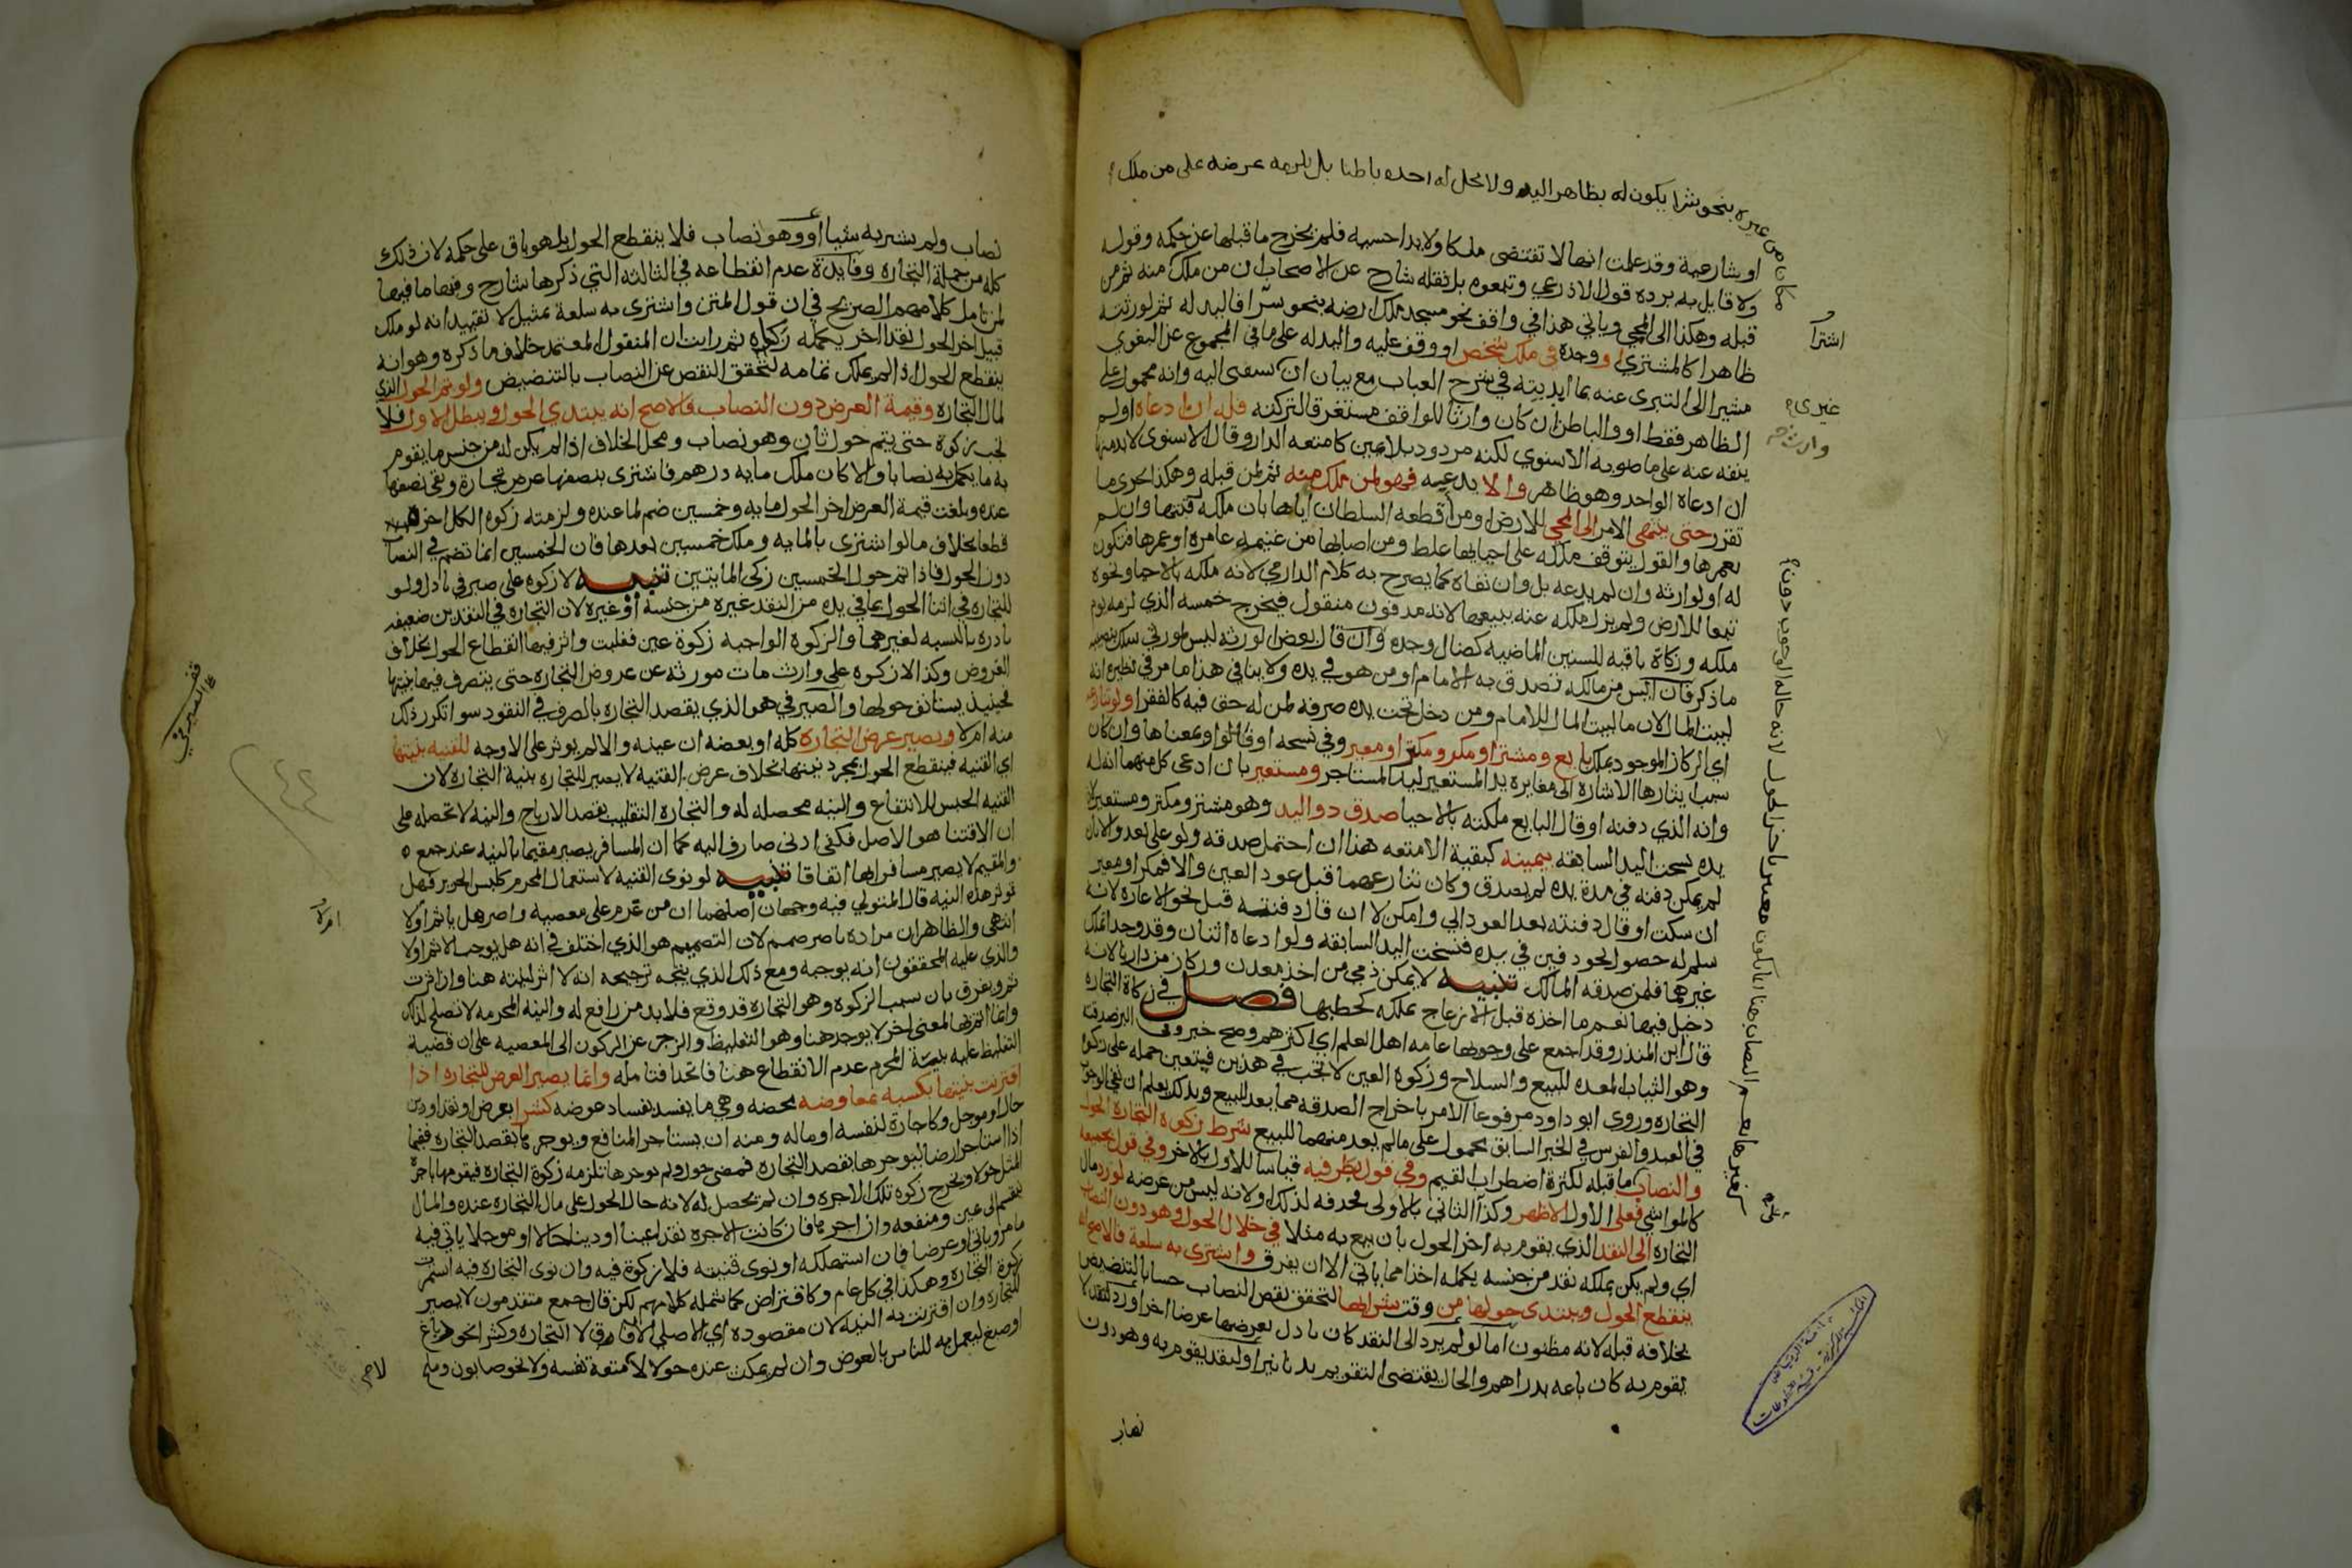 مكانا من غيره بنحو شرا يكون له بظاهر اليد ولا يحل له اخذه باطنا بل يلزمه عرضه على من ملك
او شارعية وقد علمت انها لا تقتضى ملكا ولا يدا حسية فلم يخرج ما قبلها عن حكمه وقوله
ولا قايل به يرده قول الاذرعي وتبعوه بل نقله شارح عن الاصحاب ان من ملك منه ثم من
قبله وهكذا الى المحيي وياتي هذا في واقف نحو مسجد ملك ارضه بنحو شرا فاليد له ثم لورثته
ظاهرا كالمشتري او وجده في ملك شخص او وقف عليه واليد له على ما في المجموع عن البغوي
مشيرا الى التبرى عنه بما ابديته في شرح العباب مع بيان ان وانه محمول على
الظاهر فقط او والباطن ان كان وارثا للواقف مستغرقا لتركته فله ان ادعاه او لم
ينفه عنه على ما صوبه الاسنوي لكنه مردود بلا يمين كامتعة الدار وقال الاسنوي لا بد منها
ان ادعاه الواجد وهو ظاهر والا يدعيه فهو لمن ملك منه ثم لمن قبله وهكذا يجرى ما
تقرر حتى ينتهى الامر الى المحيي للارض او من أقطعه السلطان اياها بان ملكه رقبتها وان لم
يعمرها والقول بتوقف ملكه على احيايها غلط ومن اصابها من غنيمة عامرة او عمرها فتكون
له او لوارثه وان لم يدعه بل وان نفاه كما يصرح به كلام الدارمي لانه ملكه بالاحيا ونحوه
تبعا للارض ولم يزل ملكه عنه ببيعها لانه مدفون منقول فيخرج خمسه الذي لزمه يوم
ملكه وزكاة باقيه للسنين الماضيه كضال وجده وان قال بعض الورثه ليس لمورثي سلك بنصيبه
ما ذكر فان ايس من مالكه تصدق به الامام او من هو في يده ولا ينافي هذا ما مر في نظيره انه
لبيت المال لان ما لبيت المال للامام ومن دخل تحت يده صرفه لمن له حق فيه كالفقرا ولو تنازعه
اي الركاز الموجود بملك بايع ومشتر او مكر ومكتر او معير وفي نسخه او قالوا وبمعناها وان كان
سبب ايثارها الاشارة الى مغايرة يد المستعير ليد المستاجر ومستعير بان ادعى كل منهما انه له
وانه الذي دفنه او قال البايع ملكته بالاحيا صدق ذو اليد وهو مشتر ومكتر ومستعير لان
يده نسخت اليد السابقه بيمينه كبقية الامتعه هذا ان احتمل صدقه ولو على بعد والا بان
لم يمكن دفنه في مدة يده لم يصدق وكان تنازعهما قبل عود العين والا فمكر او معير
ان سكت او قال دفنته بعد العود الي وامكن لا ان قال دفنته قبل نحو الاعاره لانه
سلم له حصول المدفون في يده فنسخت اليد السابقه ولو ادعاه اثنان وقد وجد بملك
غيرهما فلمن صدقه المالك تنبيه لا يمكن ذمي من اخذ معدن وركاز من دارنا لانه
دخيل فيها نعم ما اخذه قبل الازعاج يملكه كحطبها فصل في زكاة التجاره
قال ابن المنذر وقد اجمع على وجوبها عامة اهل العلم اي اكثرهم وصح خبر وفي البز صدقته
وهو الثياب المعده للبيع والسلاح وزكوة العين لا تجب في هذين فيتعين حمله على زكوة
التجاره وروى ابو داود مرفوعا الامر باخراج الصدقه مما يعد للبيع وبذلك يعلم ان نفي الوجوب
في العبد والفرس في الخبر السابق محمول على ما لم يعد منهما للبيع شرط زكوة التجارة الحول
والنصاب كما قبله لكثرة اضطراب القيم وفي قول بطرفيه قياسا للاول بالاخر وفي قول بجميعه
كالمواشي فعلى الاول الاظهر وكذا الثاني بالاولى فحذفه لذلك او لانه ليس من غرضه لو رد مال
التجارة الى النقد الذي يقوم به اخر الحول بان بيع به مثلا في خلال الحول وهو دون النصاب
اي ولم يكن بملكه نقد من جنسه يكمله اخذا مما ياتي الا ان يفرق واشترى به سلعة فالاصح انه
ينقطع الحول ويبتدى حولها من وقت شرايها لتحقق نقص النصاب حسا بالتنضيض
بخلافه قبله لانه مظنون اما لو لم يرد الى النقد كان بادل بعرضها عرضا اخر او رد لنقد لا
يقوم به كان باعه بدراهم والحال يقتضى التقويم بدنانير او لنقد يقوم به وهو دون
نصاب
اشترا
غيرى
وارث
نصاب ولم يشتر به شيا أو وهو نصاب فلا ينقطع الحول بل هو باق على حكمه لان ذلك
كله من جملة التجاره وفايدة عدم انقطاعه في الثالثه التي ذكرها شارح وفيها ما فيها
لمن تامل كلامهم الصريح في ان قول المتن واشترى به سلعة تمثيل لا تقييد انه لو ملك
قبيل اخر الحول نقدا اخر يكمله زكاه ثم رايت ان المنقول المعتمد خلاف ما ذكره وهو انه
ينقطع الحول اذا لم يملك تمامه لتحقق النقص عن النصاب بالتنضيض ولو تم الحول الذي
لمال التجاره وقيمة العرض دون النصاب فالاصح انه يبتدي الحول ويبطل الاول فلا
تجب زكوة حتى يتم حول ثان وهو نصاب ومحل الخلاف اذا لم يكن له من جنس ما يقوم
به ما يكمل به نصابا والا كان ملك مايه درهم فاشترى بنصفها عرض تجارة وبقي نصفها
عنده وبلغت قيمة العرض اخر الحول مايه وخمسين ضم لما عنده ولزمته زكوة الكل اخره
قطعا بخلاف ما لو اشترى بالمايه وملك خمسيين بعدها فان الخمسين انما تضم في النصاب
دون الحول فاذا تم حول الخمسين زكى المايتين تنبيه لا زكوة على صيرفي بادل ولو
للتجاره في اثنا الحول بما في يده من النقد غيره من جنسه أو غيره لان التجاره في النقدين ضعيفه
نادره بالنسبه لغيرهما والزكوة الواجبه زكوة عين فغلبت واثر فيها انقطاع الحول بخلاف
العروض وكذا لا زكوة على وارث مات مورثه عن عروض التجاره حتى يتصرف فيها بنيتها
فحينيذ يستانف حولها والصيرفي هو الذي يقصد التجاره بالصرف في النقود سوا تكرر ذلك
منه ام لا ويصير عرض التجارة كله او بعضه ان عينه والا لم يوثر على الاوجه للقنيه بنيتها
اي القنيه فينقطع الحول بمجرد نيتها بخلاف عرض القنيه لا يصير للتجاره بنية التجاره لان
القنيه الحبس للانتفاع والنيه محصله له والتجارة التقليب بقصد الارباح والنية لا تحصله على
ان الاقتنا هو الاصل فكفى ادنى صارف اليه كما ان المسافر يصير مقيما بالنيه عند جمع
والمقيم لا يصير مسافرا بها اتفاقا تنبيه لو نوى القنيه لاستعمال المحرم كلبس الحرير فهل
توثر هذه النيه قال المتولي فيه وجهان أصلهما ان من عزم على معصيه واصر هل ياثم او لا
انتهى والظاهر ان مراده باصر صمم لان التصميم هو الذي اختلف في انه هل يوجب الاثم او لا
والذي عليه المحققون انه يوجبه ومع ذلك الذي يتجه ترجيحه انه لا اثر لنيته هنا وان اثرت
ثم ويفرق بان سبب الزكوة وهو التجاره قد وقع فلا بد من رافع له والنيه المحرمه لا تصلح لذلك
وانما اثرت ثم لمعنى اخر لا يوجد هنا وهو التغليظ والزجر عن الركون الى المعصيه على ان قضية
التغليظ عليه بنية المحرم عدم الانقطاع هنا فاتحدا فتامله وانما يصير العرض للتجاره اذا
اقترنت نيتها بكسبه بمعاوضه محضه وهي ما يفسد بفساد عوضه كشرا بعرض او نقد او دين
حال او موجل وكاجارة لنفسه او ماله ومنه ان يستاجر المنافع ويوجرها بقصد التجاره ففيما
اذا استاجر ارضا ليوجرها بقصد التجاره فمضى حول ولم يوجرها تلزمه زكوة التجارة فيقومها باجرة
المثل حولا ويخرج زكوة تلك الاجره وان لم تحصل له لانه حال الحول على مال التجاره عنده والمال
ينقسم الى عين ومنفعه وان اجرها فان كانت الاجره نقدا عينا او دينا حالا او موجلا ياتي فيه
ما مر وياتي او عرضا فان استهلكه او نوى قنيته فلا زكوة فيه وان نوى التجاره فيه استمرت
زكوة التجارة وهكذا في كل عام وكاقتراض كما شمله كلامهم لكن قال جمع متقدمون لا يصير
للتجاره وان اقترنت به النيه لان مقصوده اي الاصلي الارفاق لا التجاره وكشرا نحو دباغ
او صبغ ليعمل به للناس بالعوض وان لم يمكث عنده حولا لا لامتعة نفسه ولا نحو صابون وملح
لاخر